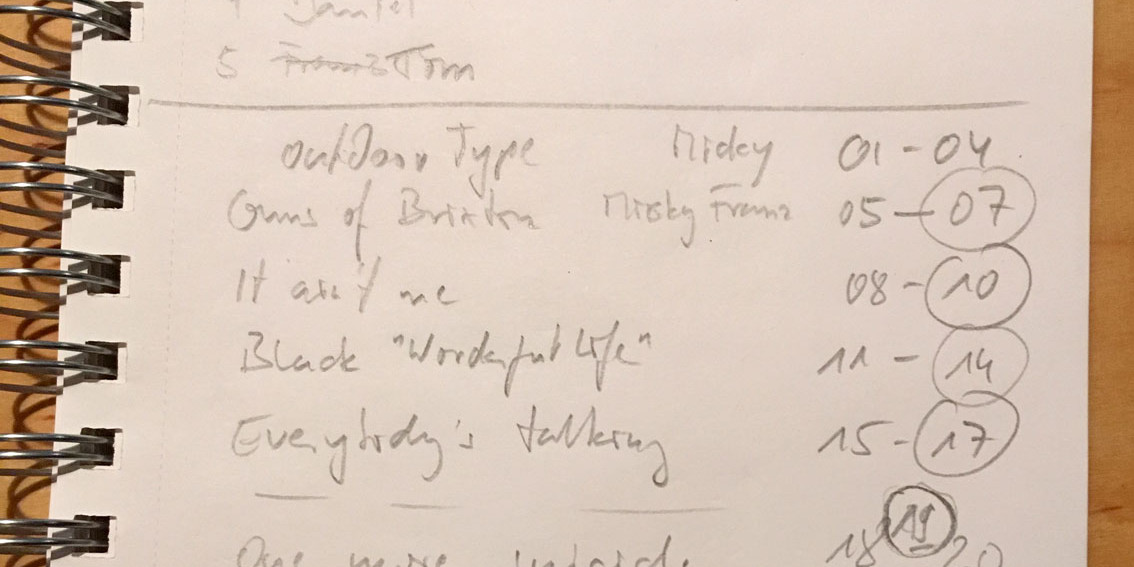 Daniel
5 Franz Tom
Outdoor Type Micky 01 - 04
Guns of Brixton Micky Franz 05 - 07
It ain't me 08 - 10
Black "Wonderful Life" 11 - 14
Everybody's talking 15 - 17
One more 18 19 20